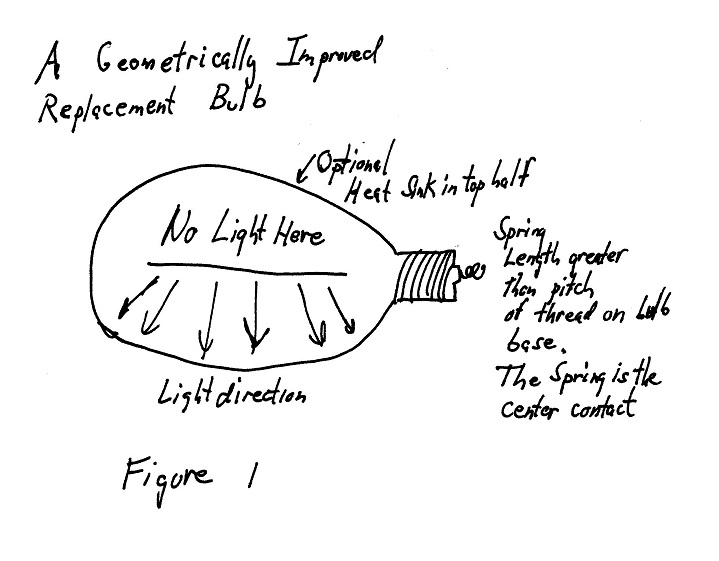 A Geometrically Improved
Replacement Bulb
Optional
Heat Sink in top half
No Light Here
Spring
Length greater
Than pitch
of thread on bulb
base.
The Spring is the
center contact
Light direction
Figure 1